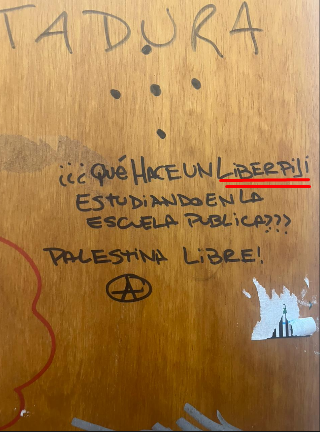 TADURA
¿¿¿QUÉ HACE UN LIBERPIJI
ESTUDIANDO EN LA
ESCUELA PUBLICA???
PALESTINA LIBRE!